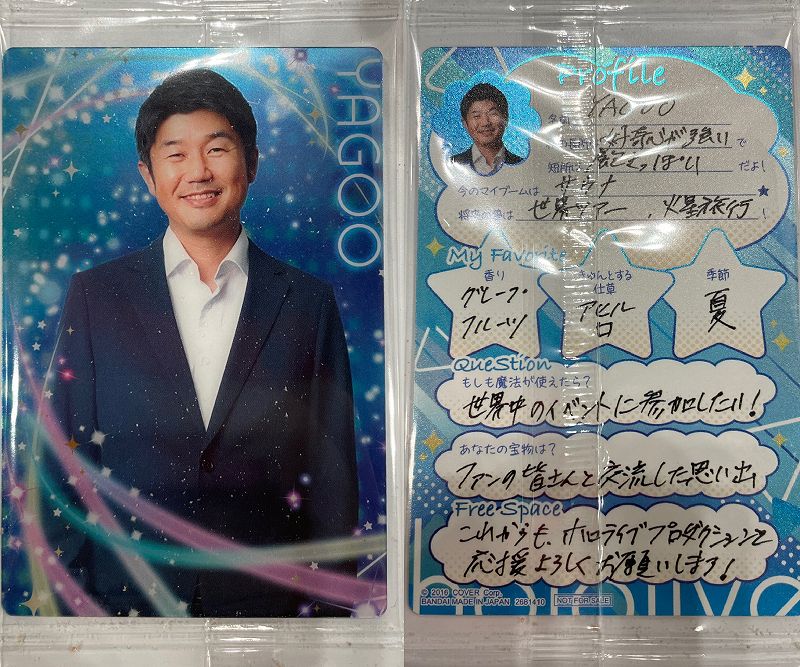 YAGOO
Profile
名前 YAGOO
長所は 好奇心が強い で
短所は 忘れっぽい だよ!
今のマイブームは サウナ ★
将来の夢は 世界ツアー、火星旅行 !
My Favorite
香り
グレープ
フルーツ
きゅんとする
仕草
アヒル
口
季節
夏
QueStion
もしも魔法が使えたら?
世界中のイベントに参加したい!
あなたの宝物は?
ファンの皆さんと交流した思い出
Free Space
これからも、ホロライブプロダクションを
応援よろしくお願いします!
hololive
© 2016 COVER Corp.
BANDAI MADE IN JAPAN 2661410 NOT FOR SALE